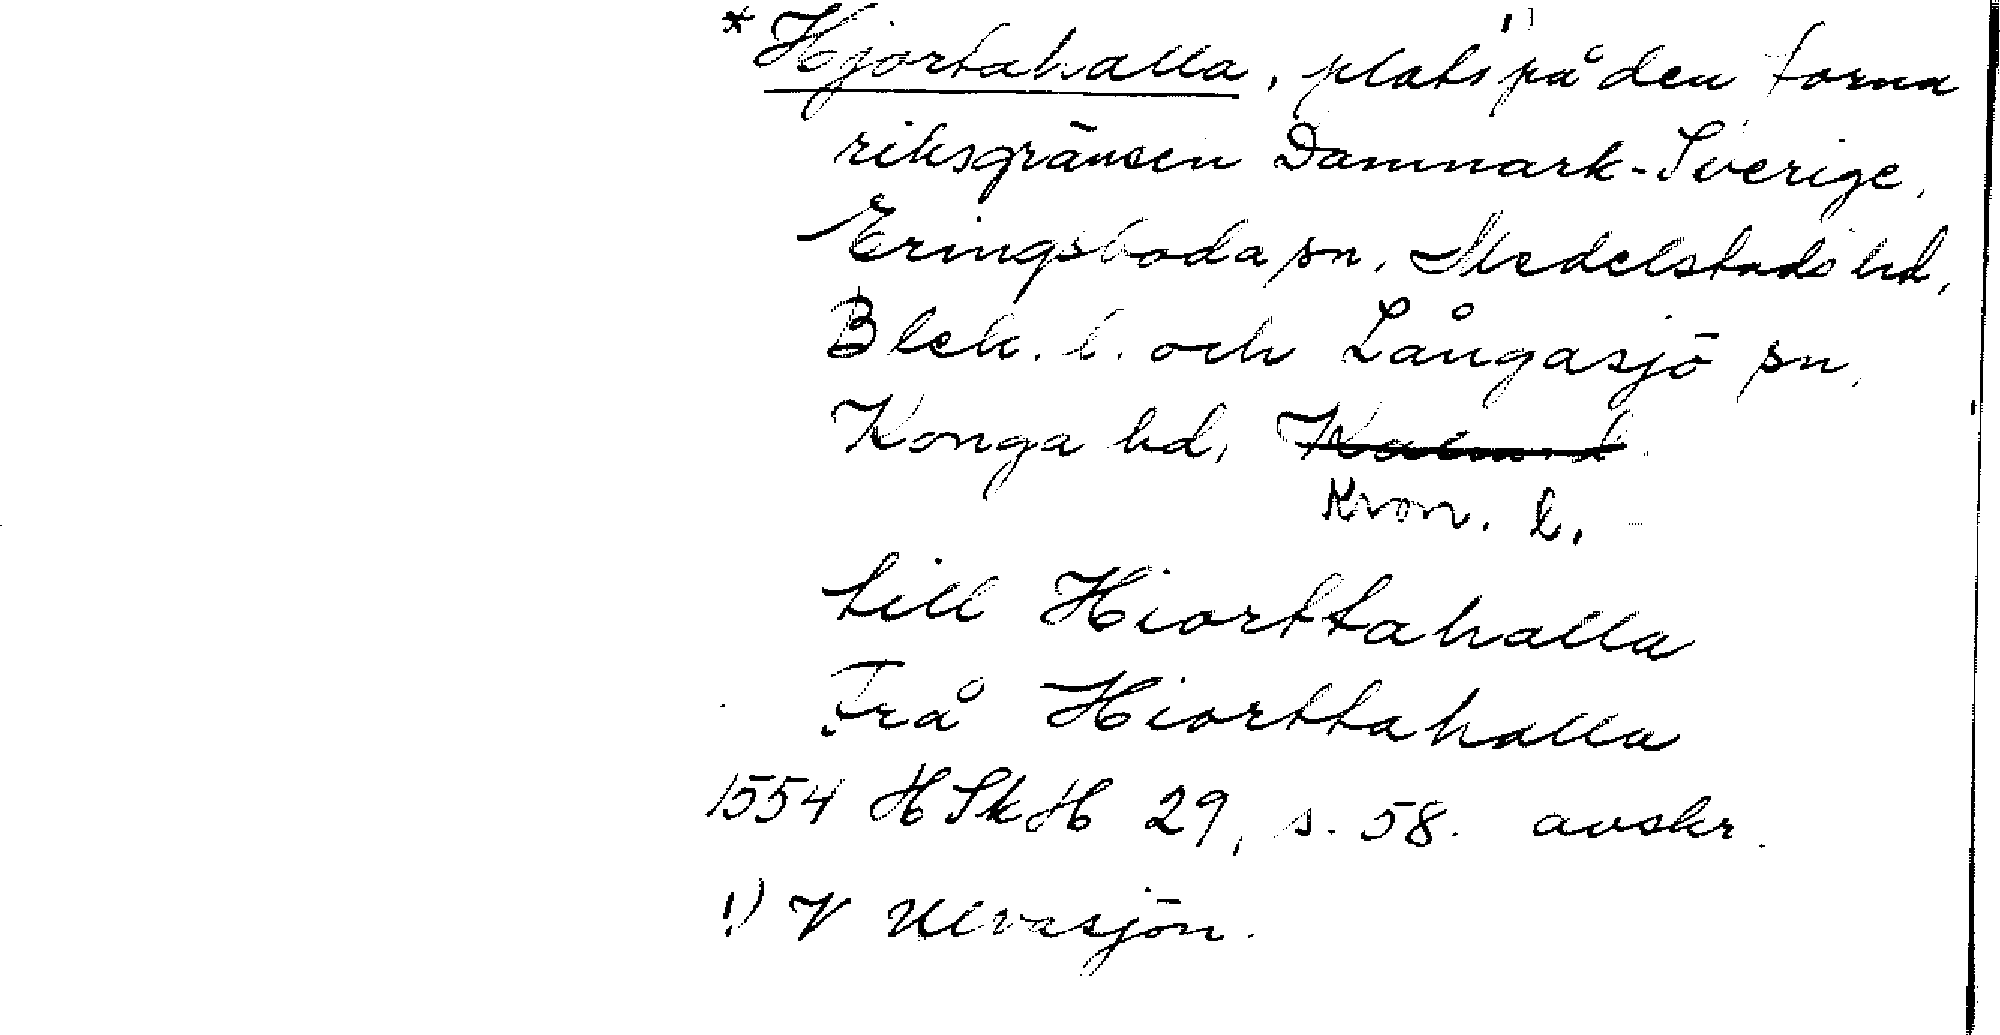 *Hjortahalla, plats¹⁾ på den forna
riksgränsen Danmark-Sverige,
Eringsboda sn, Medelstads hd,
Blek. l. och Långasjö sn,
Konga hd, Kalm. l.
Kron. l.
till Hiorttahalla
Frå Hiorttahalla
1554 HSkH 29, s. 58. avskr.
1) V Ulvasjön.